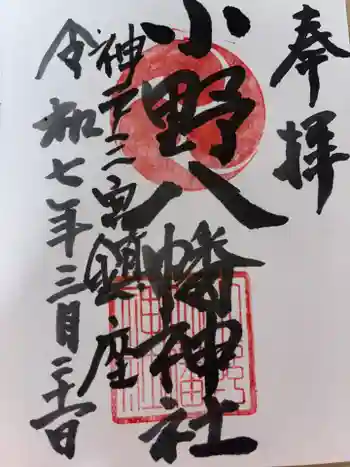 奉拝
小野八幡神社
神戸三宮鎮座
令和七年三月二十六日